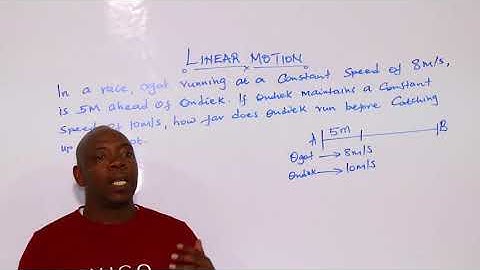 LINEAR MOTION
In a race, Ogot running at a Constant Speed of 8m/s,
is 5M ahead of Ondiek. If Ondiek maintains a Constant
Speed of 10m/s, how far does Ondiek run before Catching
up
A 5m B
Ogot → 8m/s
Ondiek → 10m/s